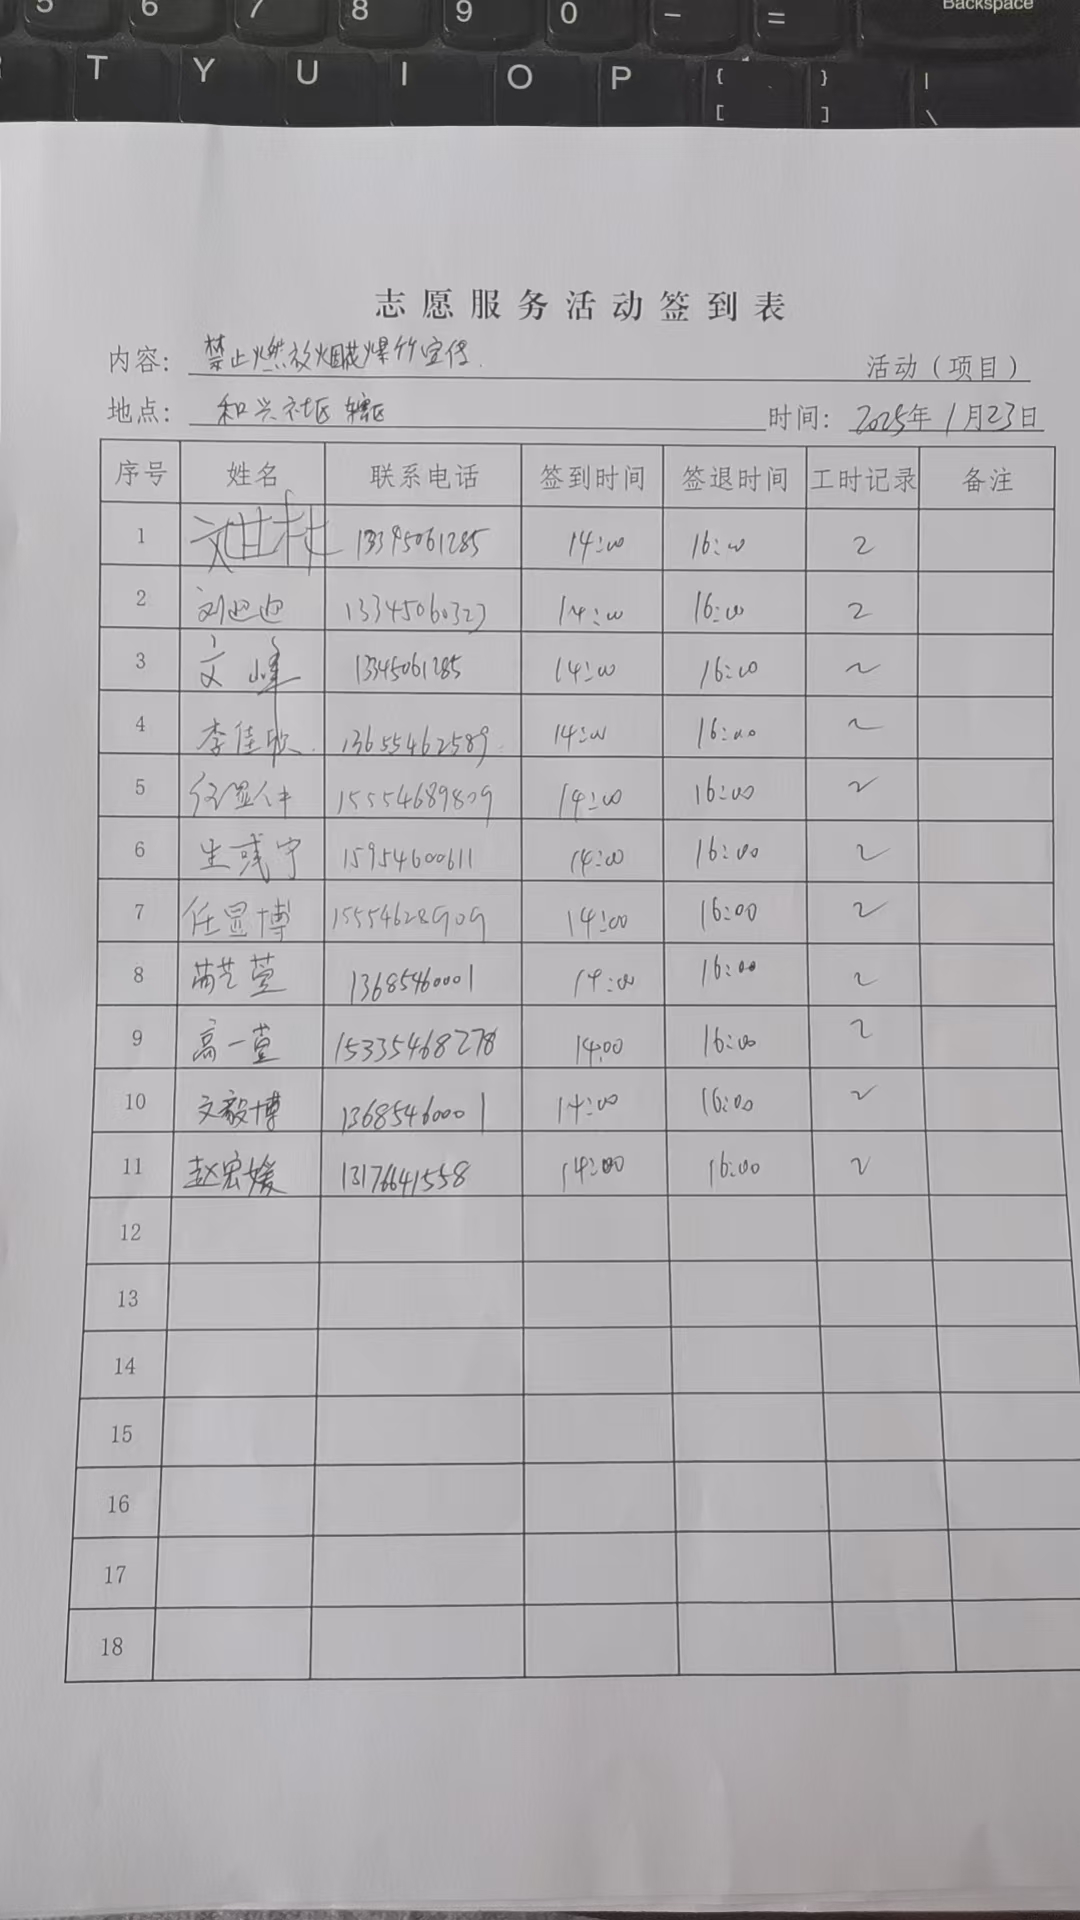 5 6 7 8 9 0 - = Backspace
T Y U I O P { [ } ] | \
志愿服务活动签到表
内容: 禁止燃放烟花爆竹宣传. 活动(项目)
地点: 和兴社区辖区 时间: 2025年1月23日
序号 姓名 联系电话 签到时间 签退时间 工时记录 备注
1 13395061285 14:00 16:00 2
2 刘迎迎 13345060323 14:00 16:00 2
3 文峰 13345061285 14:00 16:00 2
4 李佳欣. 13655462589. 14:00 16:00 2
5 15554689809 14:00 16:00 2
6 生彧宁 15954600611 14:00 16:00 2
7 任显博 15554628909 14:00 16:00 2
8 蒲艺萱 13685460001 14:00 16:00 2
9 高一萱 15335468278 14:00 16:00 2
10 文毅博 13685460001 14:00 16:00 2
11 赵宏媛 13176641558 14:00 16:00 2
12
13
14
15
16
17
18